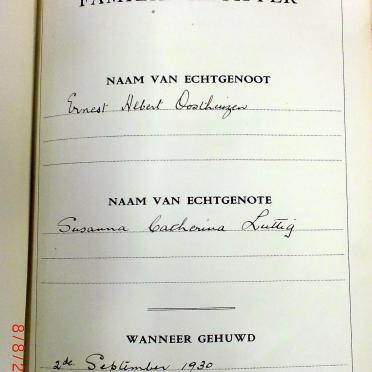 NAAM VAN ECHTGENOOT
Ernest Albert Oosthuizen
NAAM VAN ECHTGENOTE
Susanna Catherina Luttig
WANNEER GEHUWD
2de September 1930
8/8/2